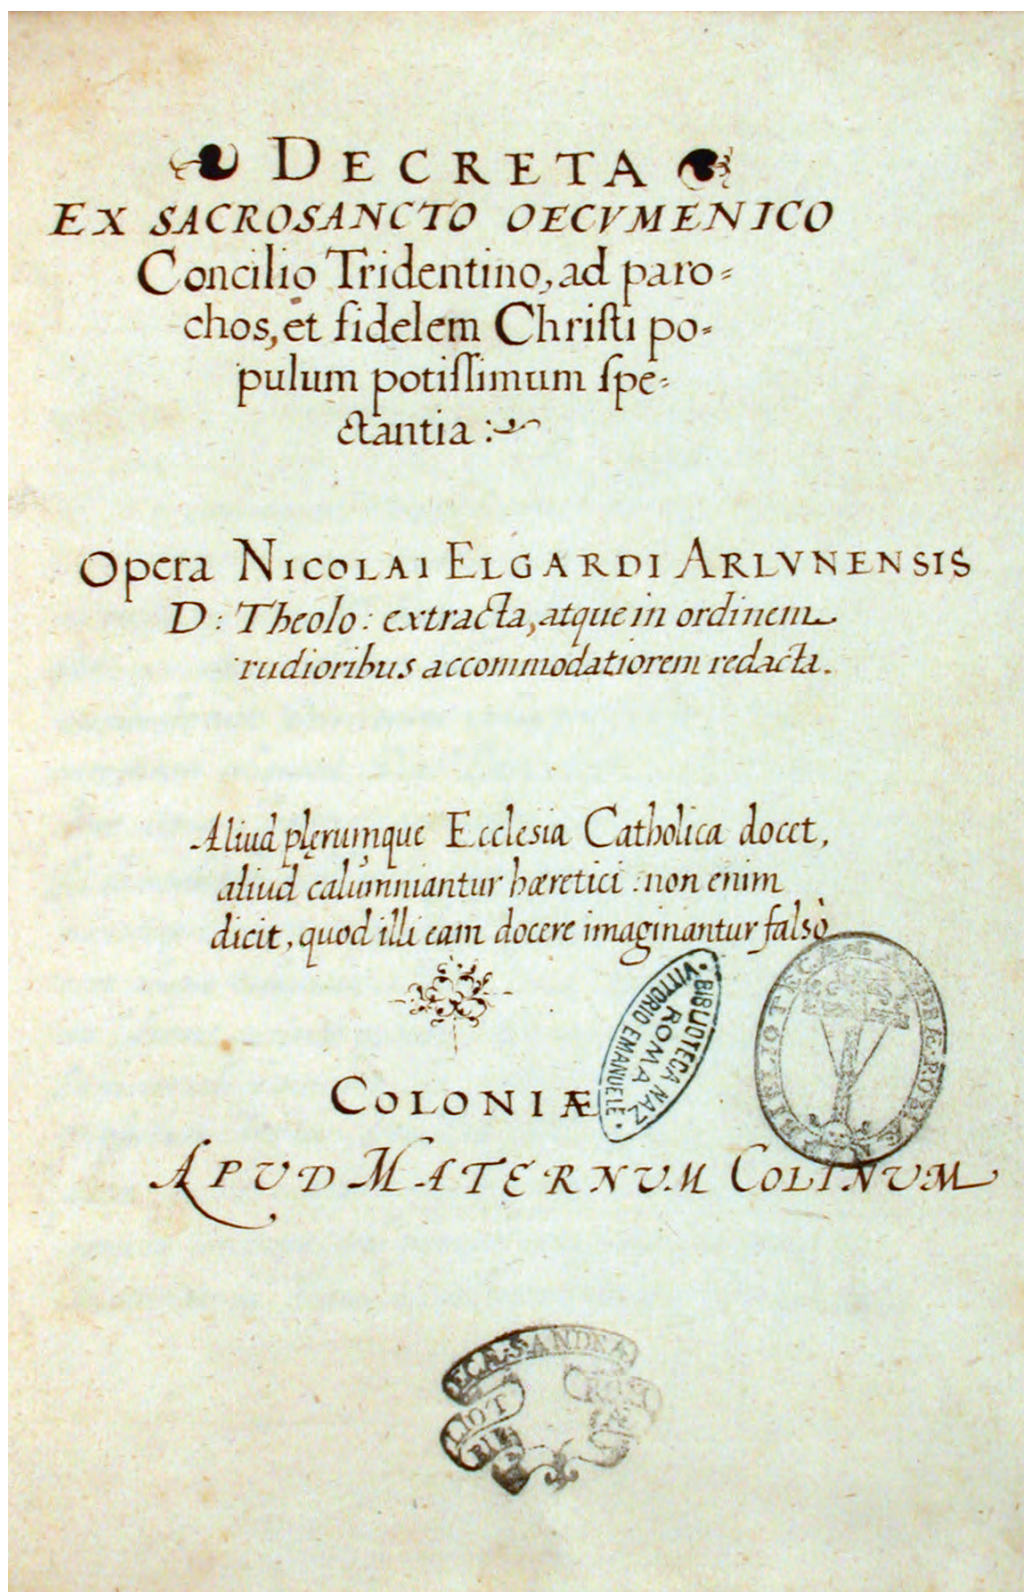 DECRETA
EX SACROSANCTO OECVMENICO
Concilio Tridentino, ad paro⸗
chos, et fidelem Chriſti po⸗
pulum potiſſimum ſpe⸗
ctantia :
Opera NICOLAI ELGARDI ARLVNENSIS
D : Theolo : extracta, atque in ordinem
rudioribus accommodatiorem redacta.
Aliud plęrumque Ecclesia Catholica docet,
aliud calumniantur hæretici : non enim
dicit, quod illi eam docere imaginantur falsò
BIBLIOTECA NAZ
ROMA
VITTORIO EMANUELE
COLONIÆ
APUD MATERNUM COLINUM